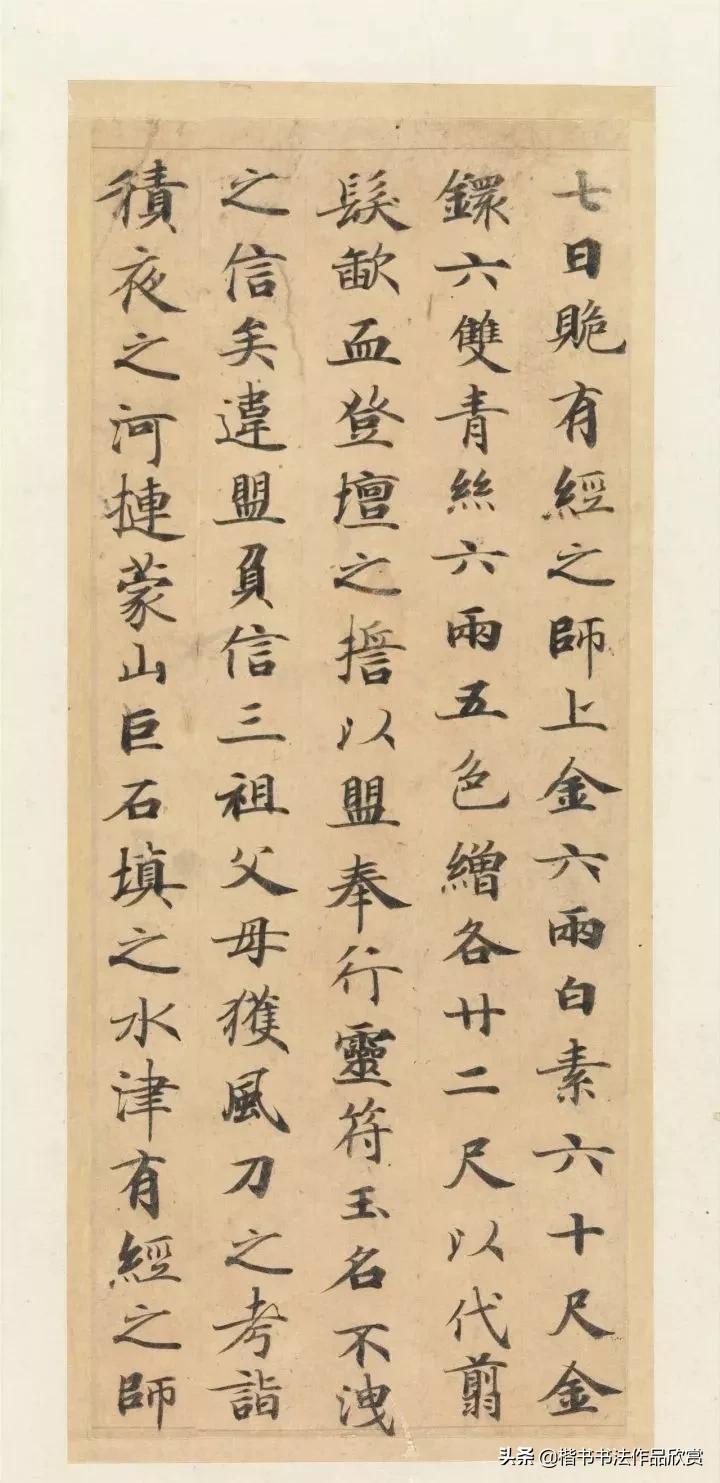 七日賍有經之師上金六兩白素六十尺金
鐶六雙青絲六兩五色繒各廿二尺以代翦
髮歃血登壇之擔以盟奉行靈符玉名不洩
之信矣違盟負信三祖父母獲風刀之考詣
積夜之河摙蒙山巨石填之水津有經之師
头条 @楷书书法作品欣赏